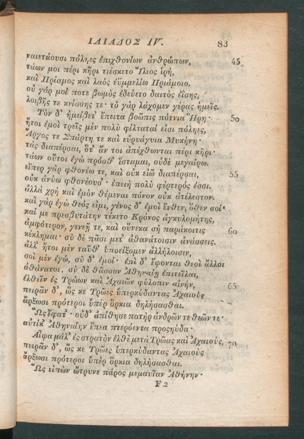 ΙΛΙΑΔΟΣ IV. 83
ναιετάουσι πόληες ἐπιχθονίων ἀνθρώπων, 45
τάων μοι πέρι κῆρι τιέσκετο Ἴλιος ἱρή,
καὶ Πρίαμος καὶ λαὸς ἐϋμμελίω Πριάμοιο.
οὐ γάρ μοί ποτε βωμὸς ἐδεύετο δαιτὸς ἐΐσης,
λοιβῆς τε κνίσσης τε· τὸ γὰρ λάχομεν γέρας ἡμεῖς.
Τὸν δ' ἠμείβετ' ἔπειτα βοῶπις πότνια Ἥρη· 50
ἤτοι ἐμοὶ τρεῖς μὲν πολὺ φίλταταί εἰσι πόληες,
Ἄργος τε Σπάρτη τε καὶ εὐρυάγυια Μυκήνη·
τὰς διαπέρσαι, ὅτ' ἄν τοι ἀπέχθωνται πέρι κῆρι·
τάων οὔτοι ἐγὼ πρόσθ' ἵσταμαι, οὐδὲ μεγαίρω.
εἴπερ γὰρ φθονέω τε, καὶ οὐκ εἰῶ διαπέρσαι, 55
οὐκ ἀνύω φθονέουσ'· ἐπειὴ πολὺ φέρτερός ἐσσι.
ἀλλὰ χρὴ καὶ ἐμὸν θέμεναι πόνον οὐκ ἀτέλεστον.
καὶ γὰρ ἐγὼ θεός εἰμι, γένος δ' ἐμοὶ ἔνθεν, ὅθεν σοί·
καί με πρεσβυτάτην τέκετο Κρόνος ἀγκυλομήτης,
ἀμφότερον, γενεῇ τε, καὶ οὕνεκα σὴ παράκοιτις 60
κέκλημαι· σὺ δὲ πᾶσι μετ' ἀθανάτοισιν ἀνάσσεις.
ἀλλ' ἤτοι μὲν ταῦθ' ὑποείξομεν ἀλλήλοισιν,
σοὶ μὲν ἐγὼ, σὺ δ' ἐμοί· ἐπὶ δ' ἕψονται θεοὶ ἄλλοι
ἀθάνατοι. σὺ δὲ θᾶσσον Ἀθηναίῃ ἐπιτεῖλαι,
ἐλθεῖν ἐς Τρώων καὶ Ἀχαιῶν φύλοπιν αἰνήν, 65
πειρᾶν δ', ὥς κε Τρῶες ὑπερκύδαντας Ἀχαιοὺς
ἄρξωσι πρότεροι ὑπὲρ ὅρκια δηλήσασθαι.
Ὣς ἔφατ'· οὐδ' ἀπίθησε πατὴρ ἀνδρῶν τε θεῶν τε·
αὐτίκ' Ἀθηναίην ἔπεα πτερόεντα προσηύδα·
Αἶψα μάλ' ἐς στρατὸν ἐλθὲ μετὰ Τρῶας καὶ Ἀχαιούς, 70
πειρᾶν δ', ὥς κε Τρῶες ὑπερκύδαντας Ἀχαιοὺς
ἄρξωσι πρότεροι ὑπὲρ ὅρκια δηλήσασθαι.
Ὣς εἰπὼν ὤτρυνε πάρος μεμαυῖαν Ἀθήνην·
F 2